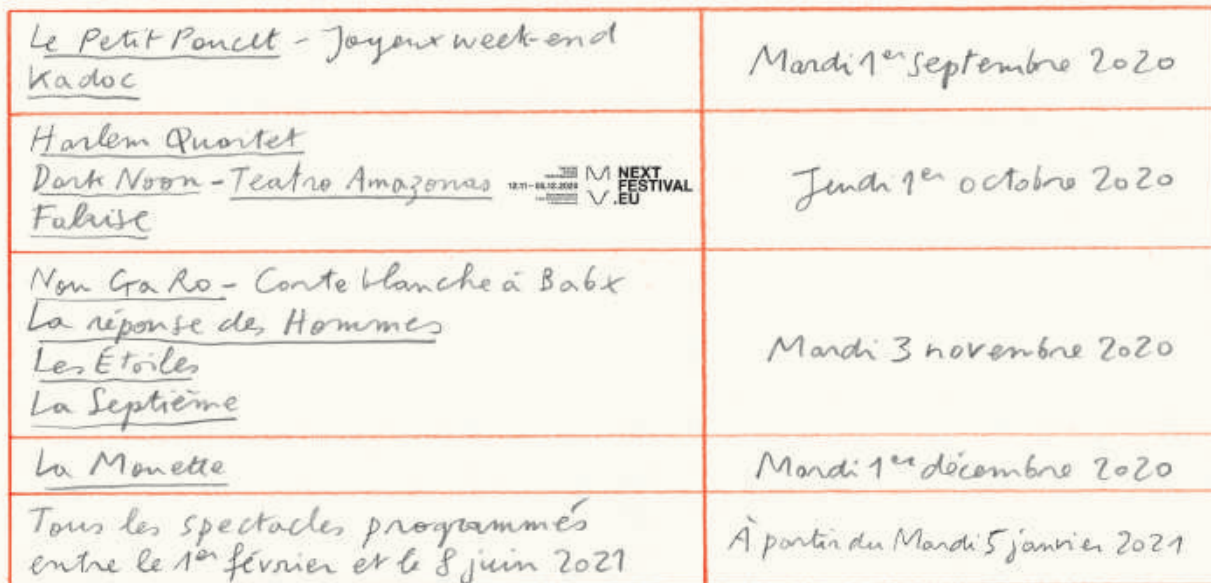 Le Petit Poucet - Joyeux week-end
Kadoc
Mardi 1er septembre 2020
Harlem Quartet
Dark Noon - Teatro Amazonas
12.11 – 05.12.2020
NEXT
FESTIVAL
.EU
Falaise
Jeudi 1er octobre 2020
Nou Ga Ro - Carte blanche à Babx
La réponse des Hommes
Les Étoiles
La Septième
Mardi 3 novembre 2020
La Mouette
Mardi 1er décembre 2020
Tous les spectacles programmés
entre le 1er février et le 8 juin 2021
À partir du Mardi 5 janvier 2021